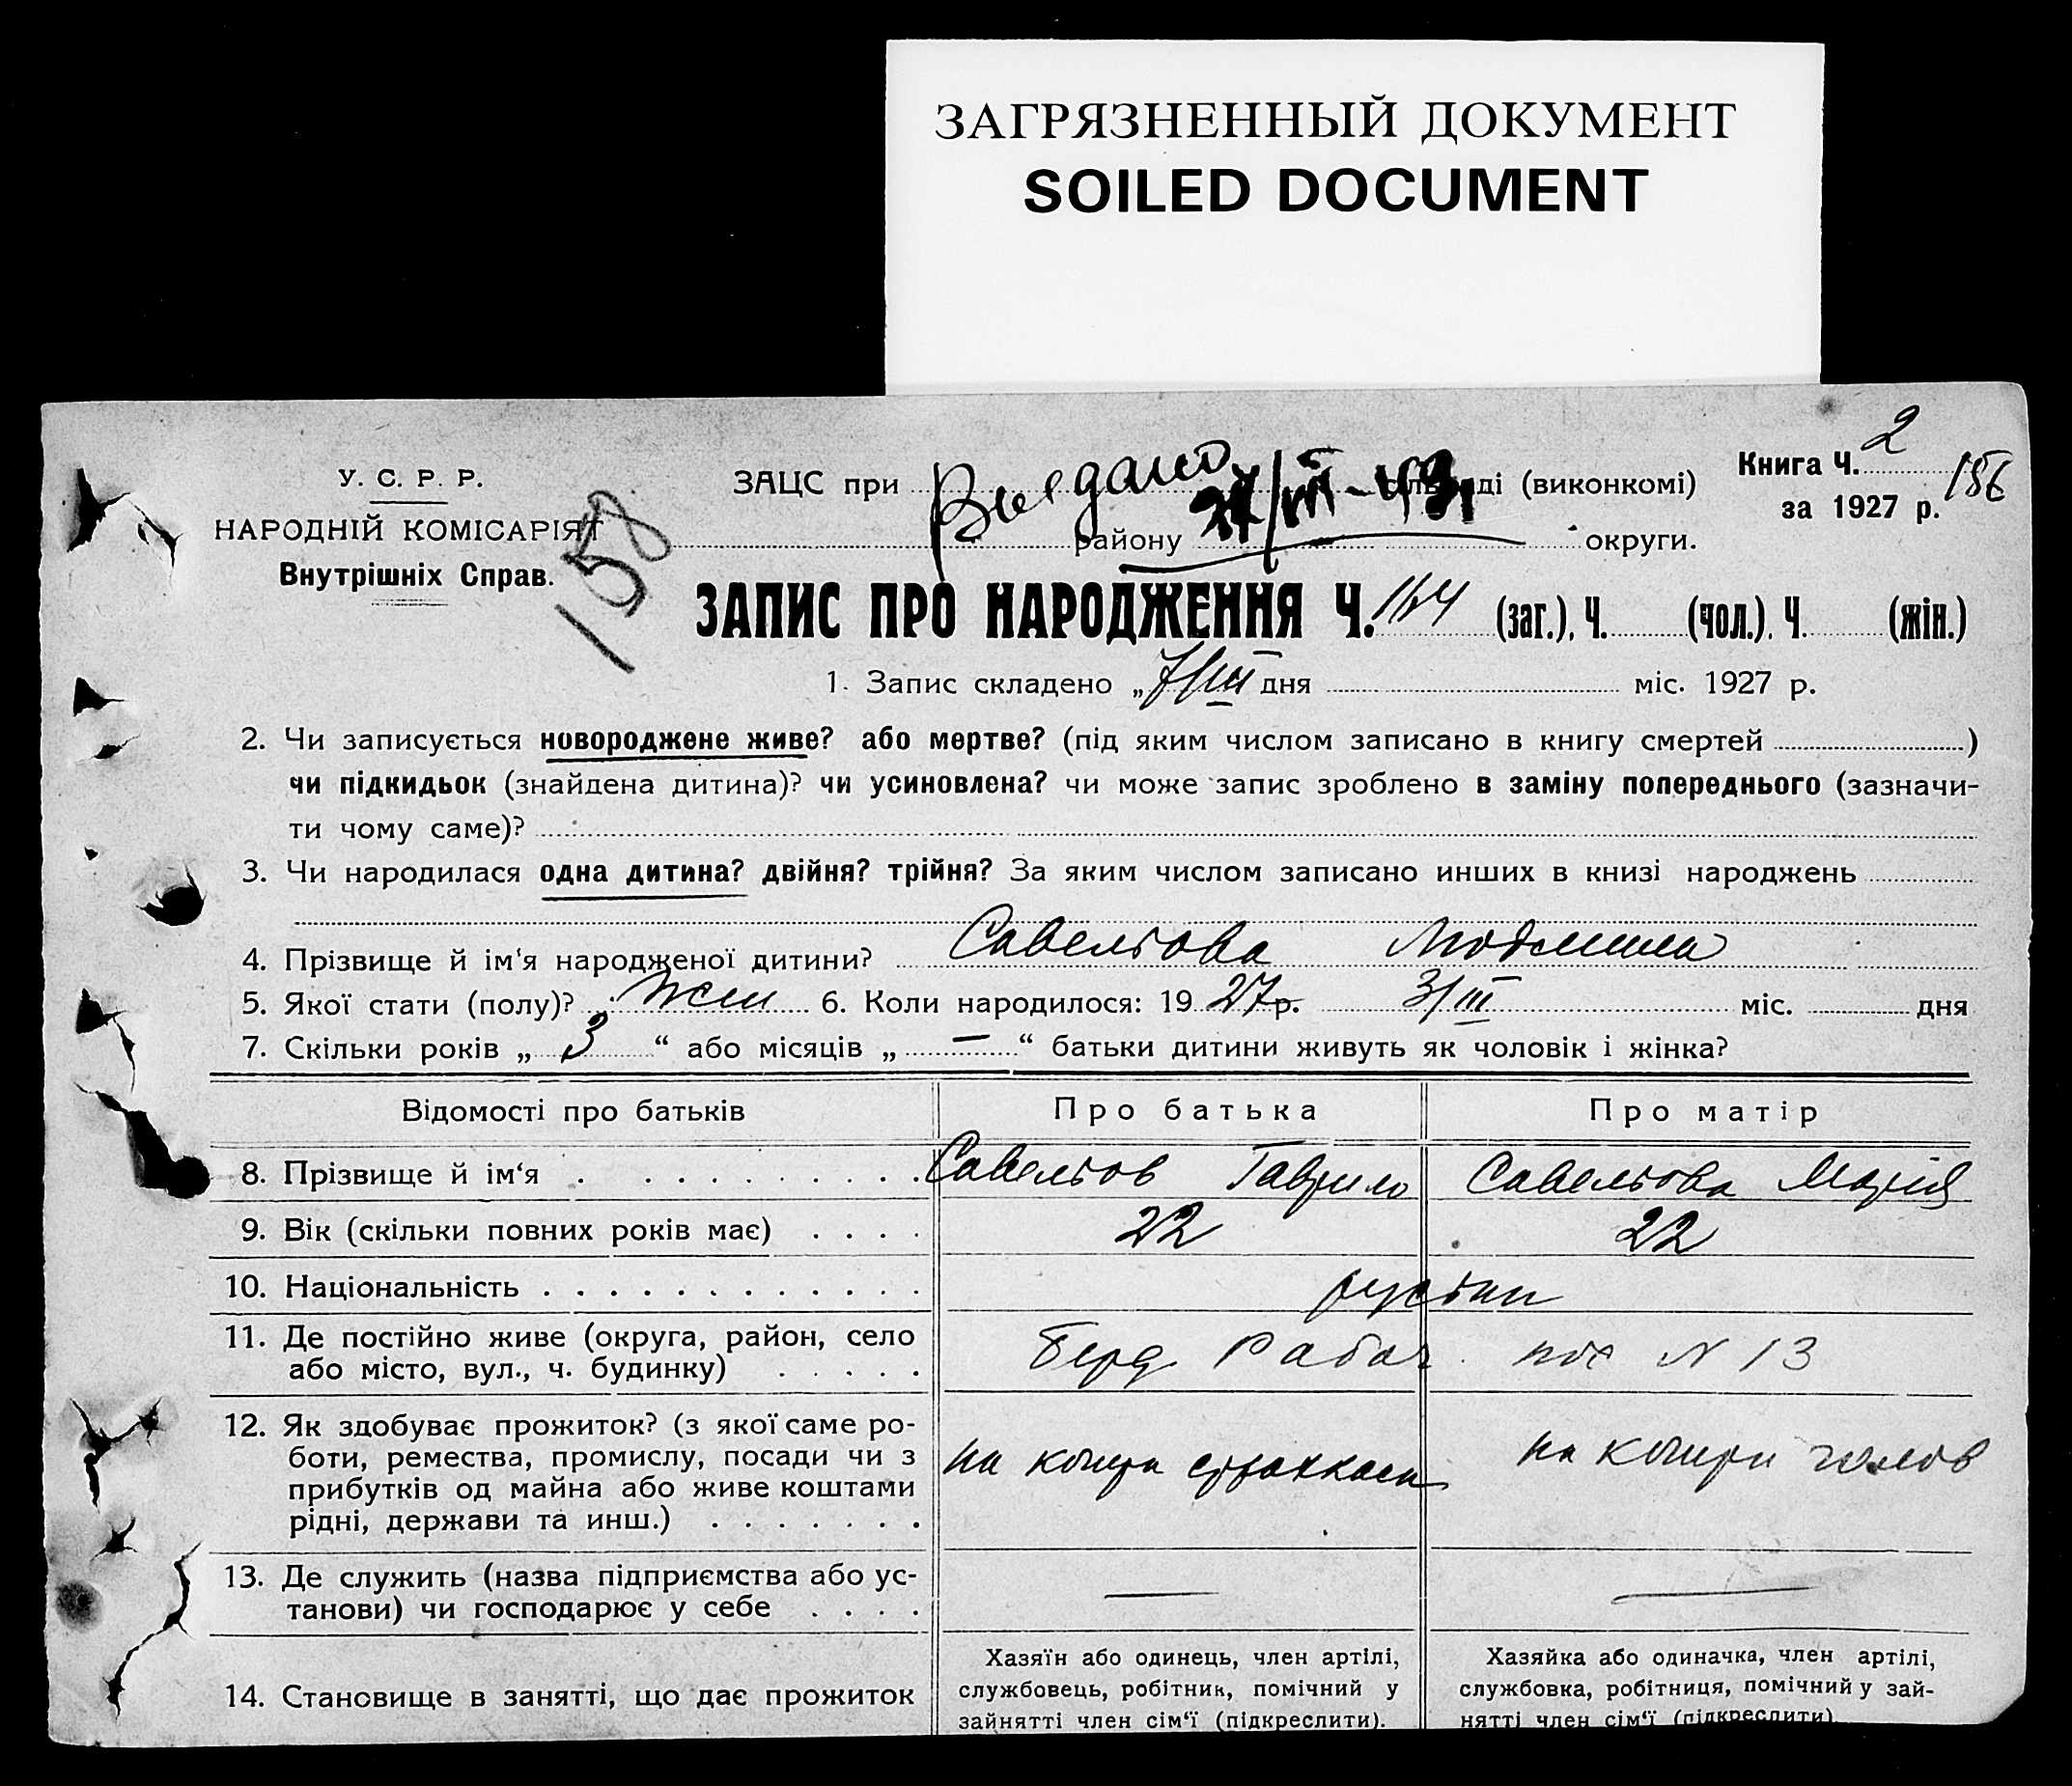 ЗАГРЯЗНЕННЫЙ ДОКУМЕНТ
SOILED DOCUMENT
У. С. Р. Р.
НАРОДНІЙ КОМІСАРІЯТ
Внутрішніх Справ.
158
ЗАЦС при Выдано 27/III-49 сільраді (виконкомі)
району округи.
Книга Ч. 2
за 1927 р. 156
ЗАПИС ПРО НАРОДЖЕННЯ Ч. 164 (заг.), Ч. (чол.). Ч. (жін.)
1. Запис складено „7/III дня міс. 1927 р.
2. Чи записується новороджене живе? або мертве? (під яким числом записано в книгу смертей )
чи підкидьок (знайдена дитина)? чи усиновлена? чи може запис зроблено в заміну попереднього (зазначи-
ти чому саме)?
3. Чи народилася одна дитина? двійня? трійня? За яким числом записано инших в книзі народжень
4. Прізвище й ім‘я народженої дитини? Савельова Людмила
5. Якої стати (полу)? жін 6. Коли народилося: 19 27 р. 3/III міс. дня
7. Скільки років „ 3 “ або місяців „ — “ батьки дитини живуть як чоловік і жінка?
Відомості про батьків Про батька Про матір
8. Прізвище й ім‘я Савельов Гаврило Савельова Марія
9. Вік (скільки повних років має) 22 22
10. Національність
11. Де постійно живе (округа, район, село
або місто, вул., ч. будинку)
Берд Рабоч. пос N 13
12. Як здобуває прожиток? (з якої саме ро-
боти, ремества, промислу, посади чи з
прибутків од майна або живе коштами
рідні, держави та инш.)
на кошти
на кошти
13. Де служить (назва підприємства або ус-
танови) чи господарює у себе
— —
14. Становище в занятті, що дає прожиток
Хазяїн або одинець, член артілі,
службовець, робітник, помічний у
зайнятті член сім‘ї (підкреслити).
Хазяйка або одиначка, член артілі,
службовка, робітниця, помічний у зай-
нятті член сім‘ї (підкреслити)